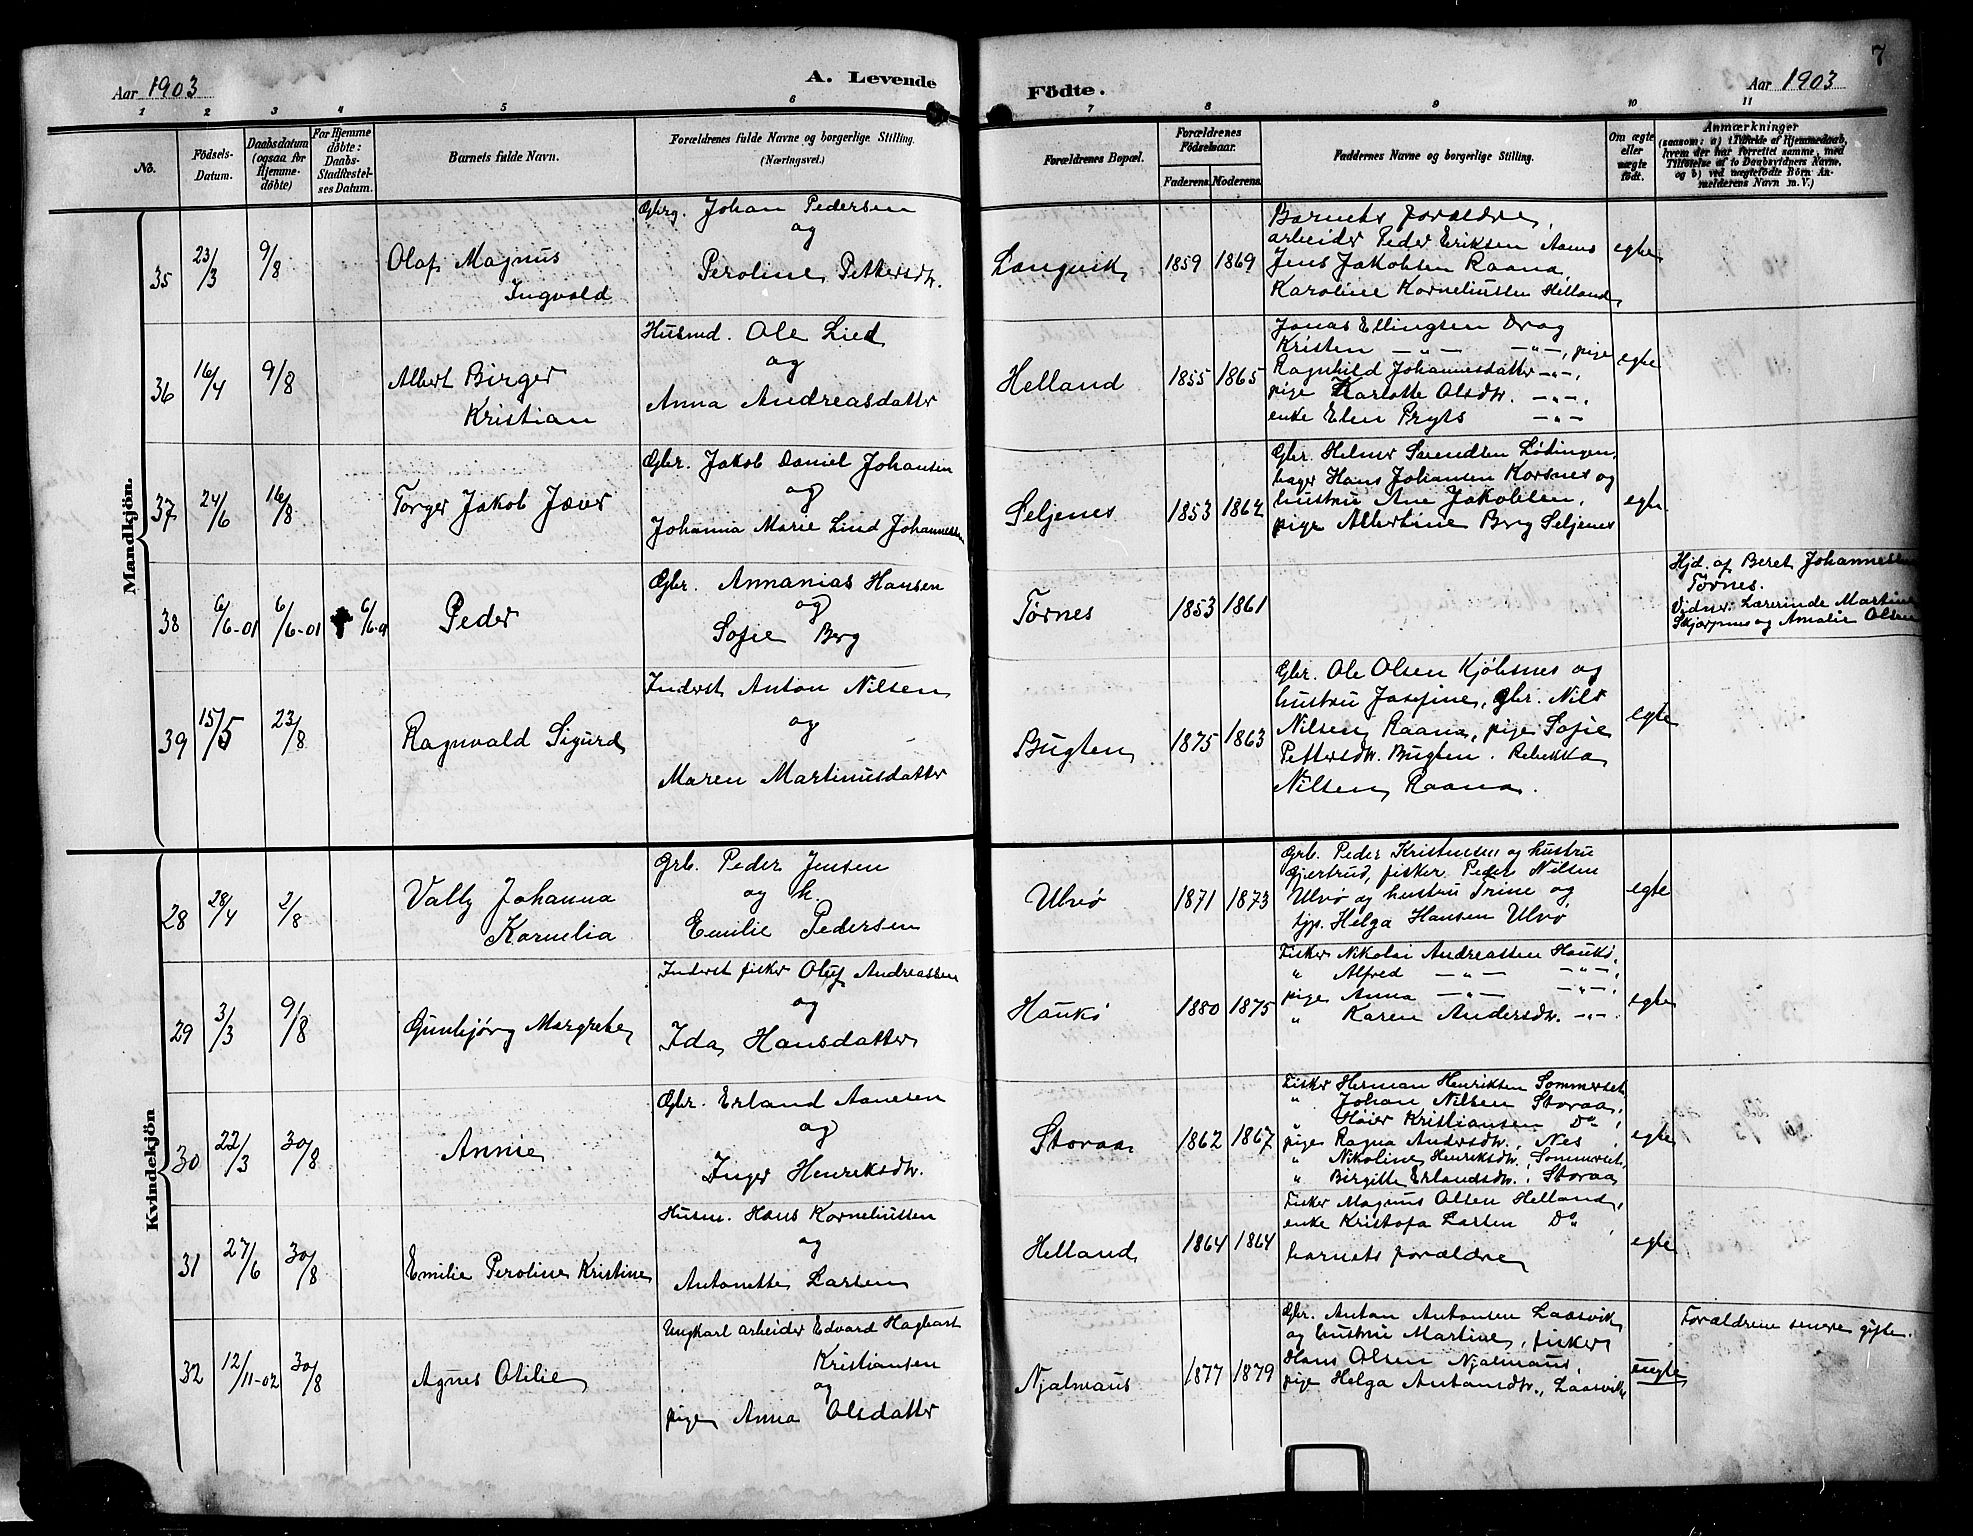 7
Aar 1903
A. Levende
Födte.
Aar 1903
1 2 3 4 5 6 7 8 9 10 11
No.
Födsels-
Datum.
Daabsdatum
(ogsaa for
Hjemme-
döbte)
For Hjemme
döbte:
Daabs-
Stadfæstel-
ses Datum.
Barnets fulde Navn.
Forældrenes fulde Navne og borgerlige Stilling.
(Næringsvei.)
Forældrenes Bopæl.
Forældrenes
Födselsaar.
Faderens. Moderens.
Faddernes Navne og borgerlige Stilling.
Om ægte
eller
uægte
födt.
Anmærkninger
(saasom: a) i Tilfælde af Hjemmedaab,
hvem der har forrettet samme, med
Tilföielse af to Daabsvidners Navne.
og b) ved uægtefödte Börn An-
melderens Navn m. V.)
Mandkjön.
35
23/3
9/8
Olaf Magnus
Ingvald
Gbrg. Johan Pedersen
og
Peroline Pettersdtr.
Langvik
1859 1869
Barnets forældre,
arbeider Peder Eriksen Aanes
Jens Jakobsen Raana,
Karoline Korneliussen Helland,
egte
36
16/4
9/8
Albert Birger
Kristian
Husmd. Ole Lied
og
Anna Andreasdatter
Helland
1855 1865
Jonas Ellingsen Drag
Kristen —"— —"—, pige
Ragnhild Johannesdatter —"—,
pige Karlotte Olsdtr. —"—,
enke Elen Pryts —"—
egte
37
24/6
16/8
Torger Jakob Jæver
Gbr. Jakob Daniel Johansen
og
Johanna Marie Lind Johannessen
Seljenes
1853 1864
Gbr. Helmer Sarendsen Lødingen,
bager Hans Johansen Korsnes og
hustru Ane Jakobsen,
pige Albertine Berg Seljenes
egte
38
6/6-01
6/6-01
6/6-01
Peder
Gbr. Annanias Hansen
og
Sofie Berg
Tørnes
1853 1861
Hjd. af Beret Johannessen
Tørnes.
Vidner: Lærerinde Martine
Skjarpnes og Amalie Olsen
39
15/5
23/8
Ragnvald Sigurd
Inderst Anton Nilsen
og
Maren Martinusdatter
Bugten
1875 1863
Gbr. Ole Olsen Kjöbsnes og
hustru Josefine, gbr. Nils
Nilsen Raana, pige Sofie
Pettersdtr. Bugten. Rebekka
Nilsen, Raana.
egte
Kvindekjön
28
28/4
2/8
Vally Johanna
Kornelia
Grb. Peder Jensen
og h.
Emilie Pedersen
Ulvø
1871 1873
Grb. Peder Kristensen og hustru
Gjertrud, fisker Peder Nilsen
Ulvø og hustru Trine og
tjp. Helga Hansen Ulvø
egte
29
3/3
9/8
Gunbjörg Margrethe
Inderst fisker Oluf Andreassen
og
Ida Hansdatter
Haukö
1880 1875
Fisker Nikolai Andreassen Haukö,
" Alfred —"— —"—,
pige Anna —"— —"—,
" Karen Andersdtr. —"—.
egte
30
22/3
30/8
Annie
Gbr. Erland Aanesen
og
Inger Henriksdtr.
Storaa
1862 1867
Fisker Herman Henriksen Sommerset,
" Johan Nilsen Storaa,
" Høier Kristiansen Do,
pige Ragna Andersdtr., Nes,
" Nikoline Henriksdtr., Sommerset,
" Birgitte Erlandsdtr., Storaa
egte
31
27/6
30/8
Emilie Peroline Kristine
Husm. Hans Korneliussen
og
Antonette Larsen
Helland
1864 1864
Fisker Magnus Olsen Helland,
enke Kristofa Larsen Do,
barnets forældre
egte
32
12/11-02
30/8
Agnes Otilie
Ungkarl arbeider Edvard Hagbart
Kristiansen
og
pige Anna Olsdatter
Njalmaus
1877 1879
Gbr. Anton Antonsen Laasvik
og hustru Martine, fisker
Hans Olsen Njalmaus,
pige Helga Antonsdtr., Laasvik
uegte
Forældrene senere gifte.